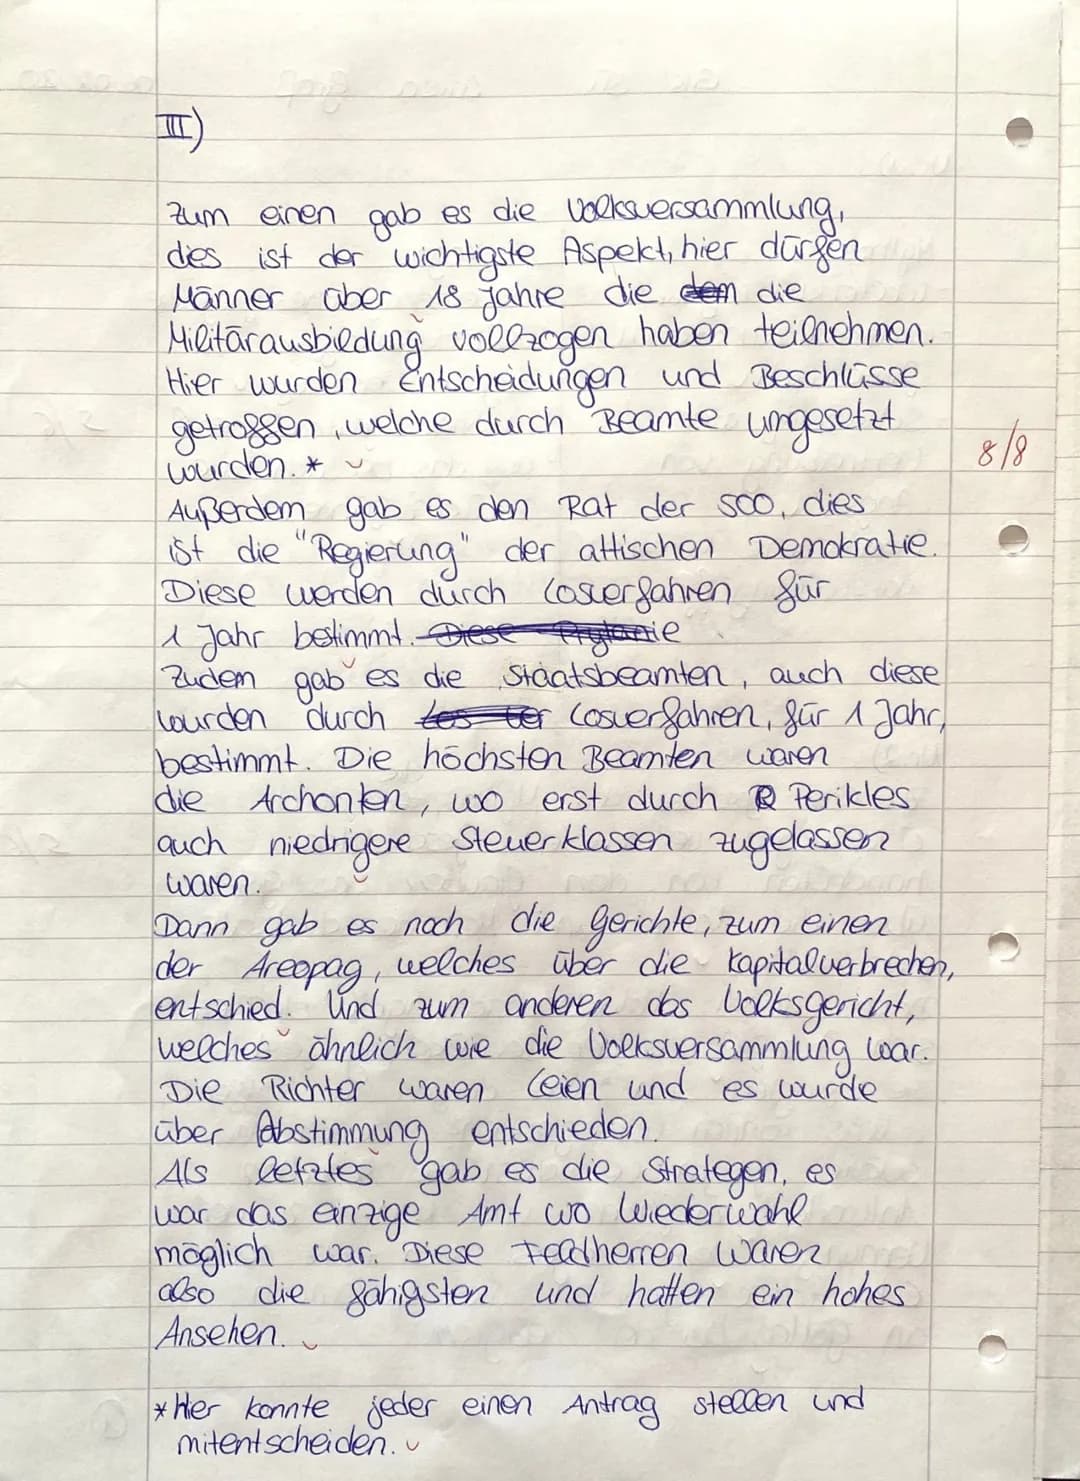 III)
Zum einen gab es die Volksversammlung,
dies ist der wichtigste Aspekt, hier dürfen
Männer über 18 Jahre die dem die
Militärausbildung vollzogen haben teilnehmen.
Hier wurden Entscheidungen und Beschlüsse
getroffen, welche durch Beamte umgesetzt
wurden. *
8/8
Außerdem gab es den Rat der 500, dies
ist die "Regierung" der attischen Demokratie.
Diese werden durch Losverfahren für
1 Jahr bestimmt. Diese Prytanie
Zudem gab es die Staatsbeamten, auch diese
wurden durch Los ver Losverfahren, für 1 Jahr,
bestimmt. Die höchsten Beamten waren
die Archonten, wo erst durch Perikles
auch niedrigere Steuerklassen zugelassen
waren.
Dann gab es noch die Gerichte, zum einen
der Areopag, welches über die Kapitalverbrechen,
entschied. Und zum anderen das Volksgericht,
welches ähnlich wie die Volksversammlung war.
Die Richter waren Leien und es wurde
über Abstimmung entschieden.
Als letztes gab es die Strategen, es
war das einzige Amt wo Wiederwahl
möglich war. Diese Feldherren waren
also die fähigsten und hatten ein hohes
Ansehen.
* Hier konnte jeder einen Antrag stellen und
mitentscheiden.